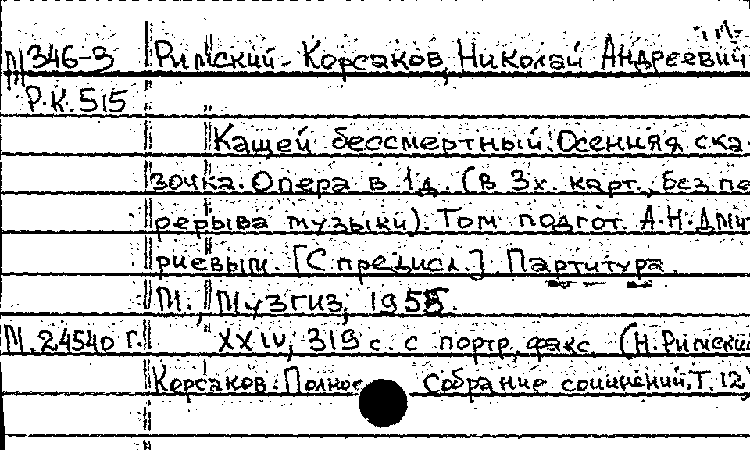 М 346-3 Римский-Корсаков, Николай Андреевич
Р.К. 515
Кащей бессмертный. Осенняя ска-
зочка. Опера в 1 д. (в 3х. карт., без пе
рерыва музыки). Том подгот. А.Н. Дмит
риевым. [С предисл.] Партитура.
М., Музгиз, 1955.
М. 24540 г. XXIV, 319 с. с портр., факс. (Н. Римский
Корсаков. Полное Собрание сочинений, Т. 12)